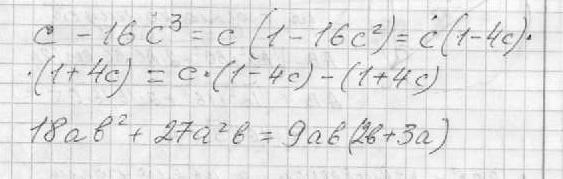 c - 16c³ = c (1 - 16c²) = c(1-4c)·
·(1+4c) = c·(1-4c) - (1+4c)
18ab² + 27a²b = 9ab(2b+3a)